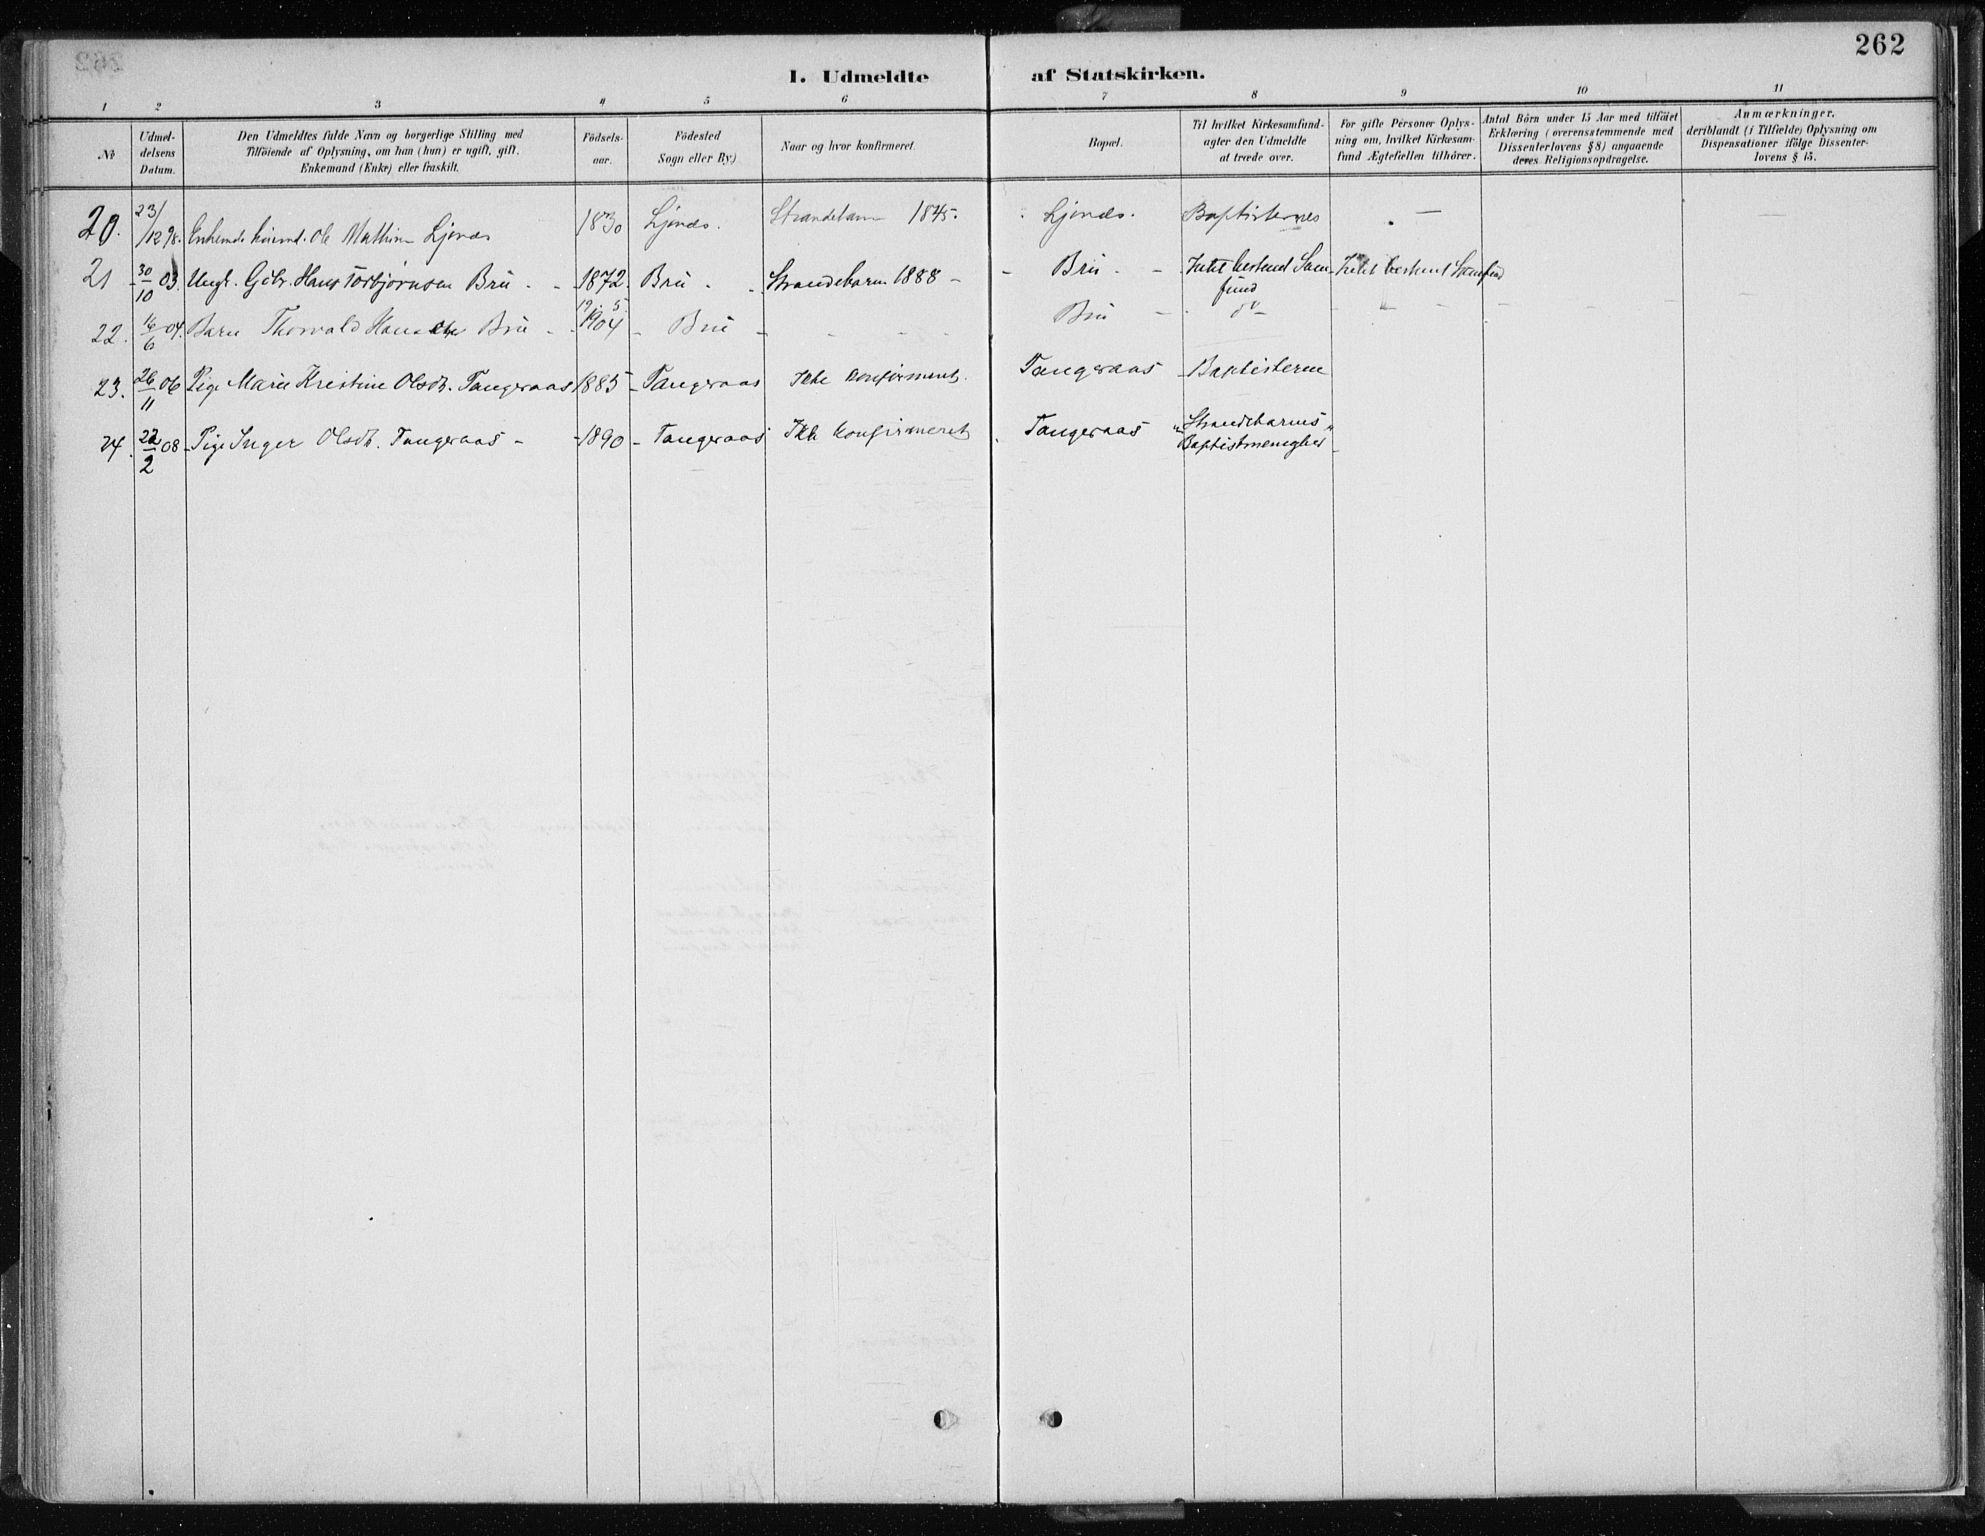 262
I. Udmeldte af Statskirken.
1 2 3 4 5 6 7 8 9 10 11
No
Udmel-
delsens
Datum.
Den Udmeldtes fulde Navn og borgerlige Stilling med
Tilföiende af Oplysning, om han (hun) er ugift, gift,
Enkemand (Enke) eller fraskilt.
Födsels-
aar.
Födested
Sogn eller By)
Naar og hvor konfirmeret.
Bopæl.
Til hvilket Kirkesamfund-
agter den Udmeldte
at træde over.
For gifte Personer Oplys-
ning om, hvilket Kirkesam-
fund Ægtefællen tilhörer.
Antal Börn under 15 Aar med tilföiet
Erklæring (overensstemmende med
Dissenterlovens § 8) angaaende
deres Religionsopdragelse.
Anmærkninger,
deriblandt (i Tilfælde) Oplysning om
Dispensationer ifölge Dissenter-
lovens § 15.
20. 23/12 98. Ole Mathias Ljonæs 1830 Ljonæs. Strandebarm 1845. Ljonæs. Baptisternes — —
21 30/10 03. Ungk. Gbr. Hans Torbjørnsen Bru - 1872. Bru - Strandebarm 1888 - Bru - Intet bestemt Sam- Intet bestemt Samfund
fund
22. 16/6 04. Barn Thorvald Bru - 19/5 1904 - Bru - Bru - do -
23. 26/11 06 Pige Marie Kristine Olsdt. Tangeraas 1885 - Tangeraas Ikke konfirmeret. Tangeraas - Baptisterne
24. 22/2 08 - Pige Inger Olsdt. Tangeraas - 1890 - Tangeraas Ikke konfirmeret Tangeraas "Strandebarms
Baptistmenighed"